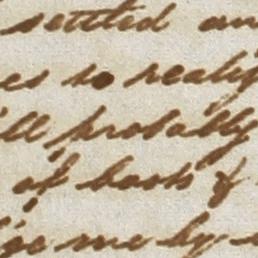 settled an
es to realiz
ll probably
of books &
me by